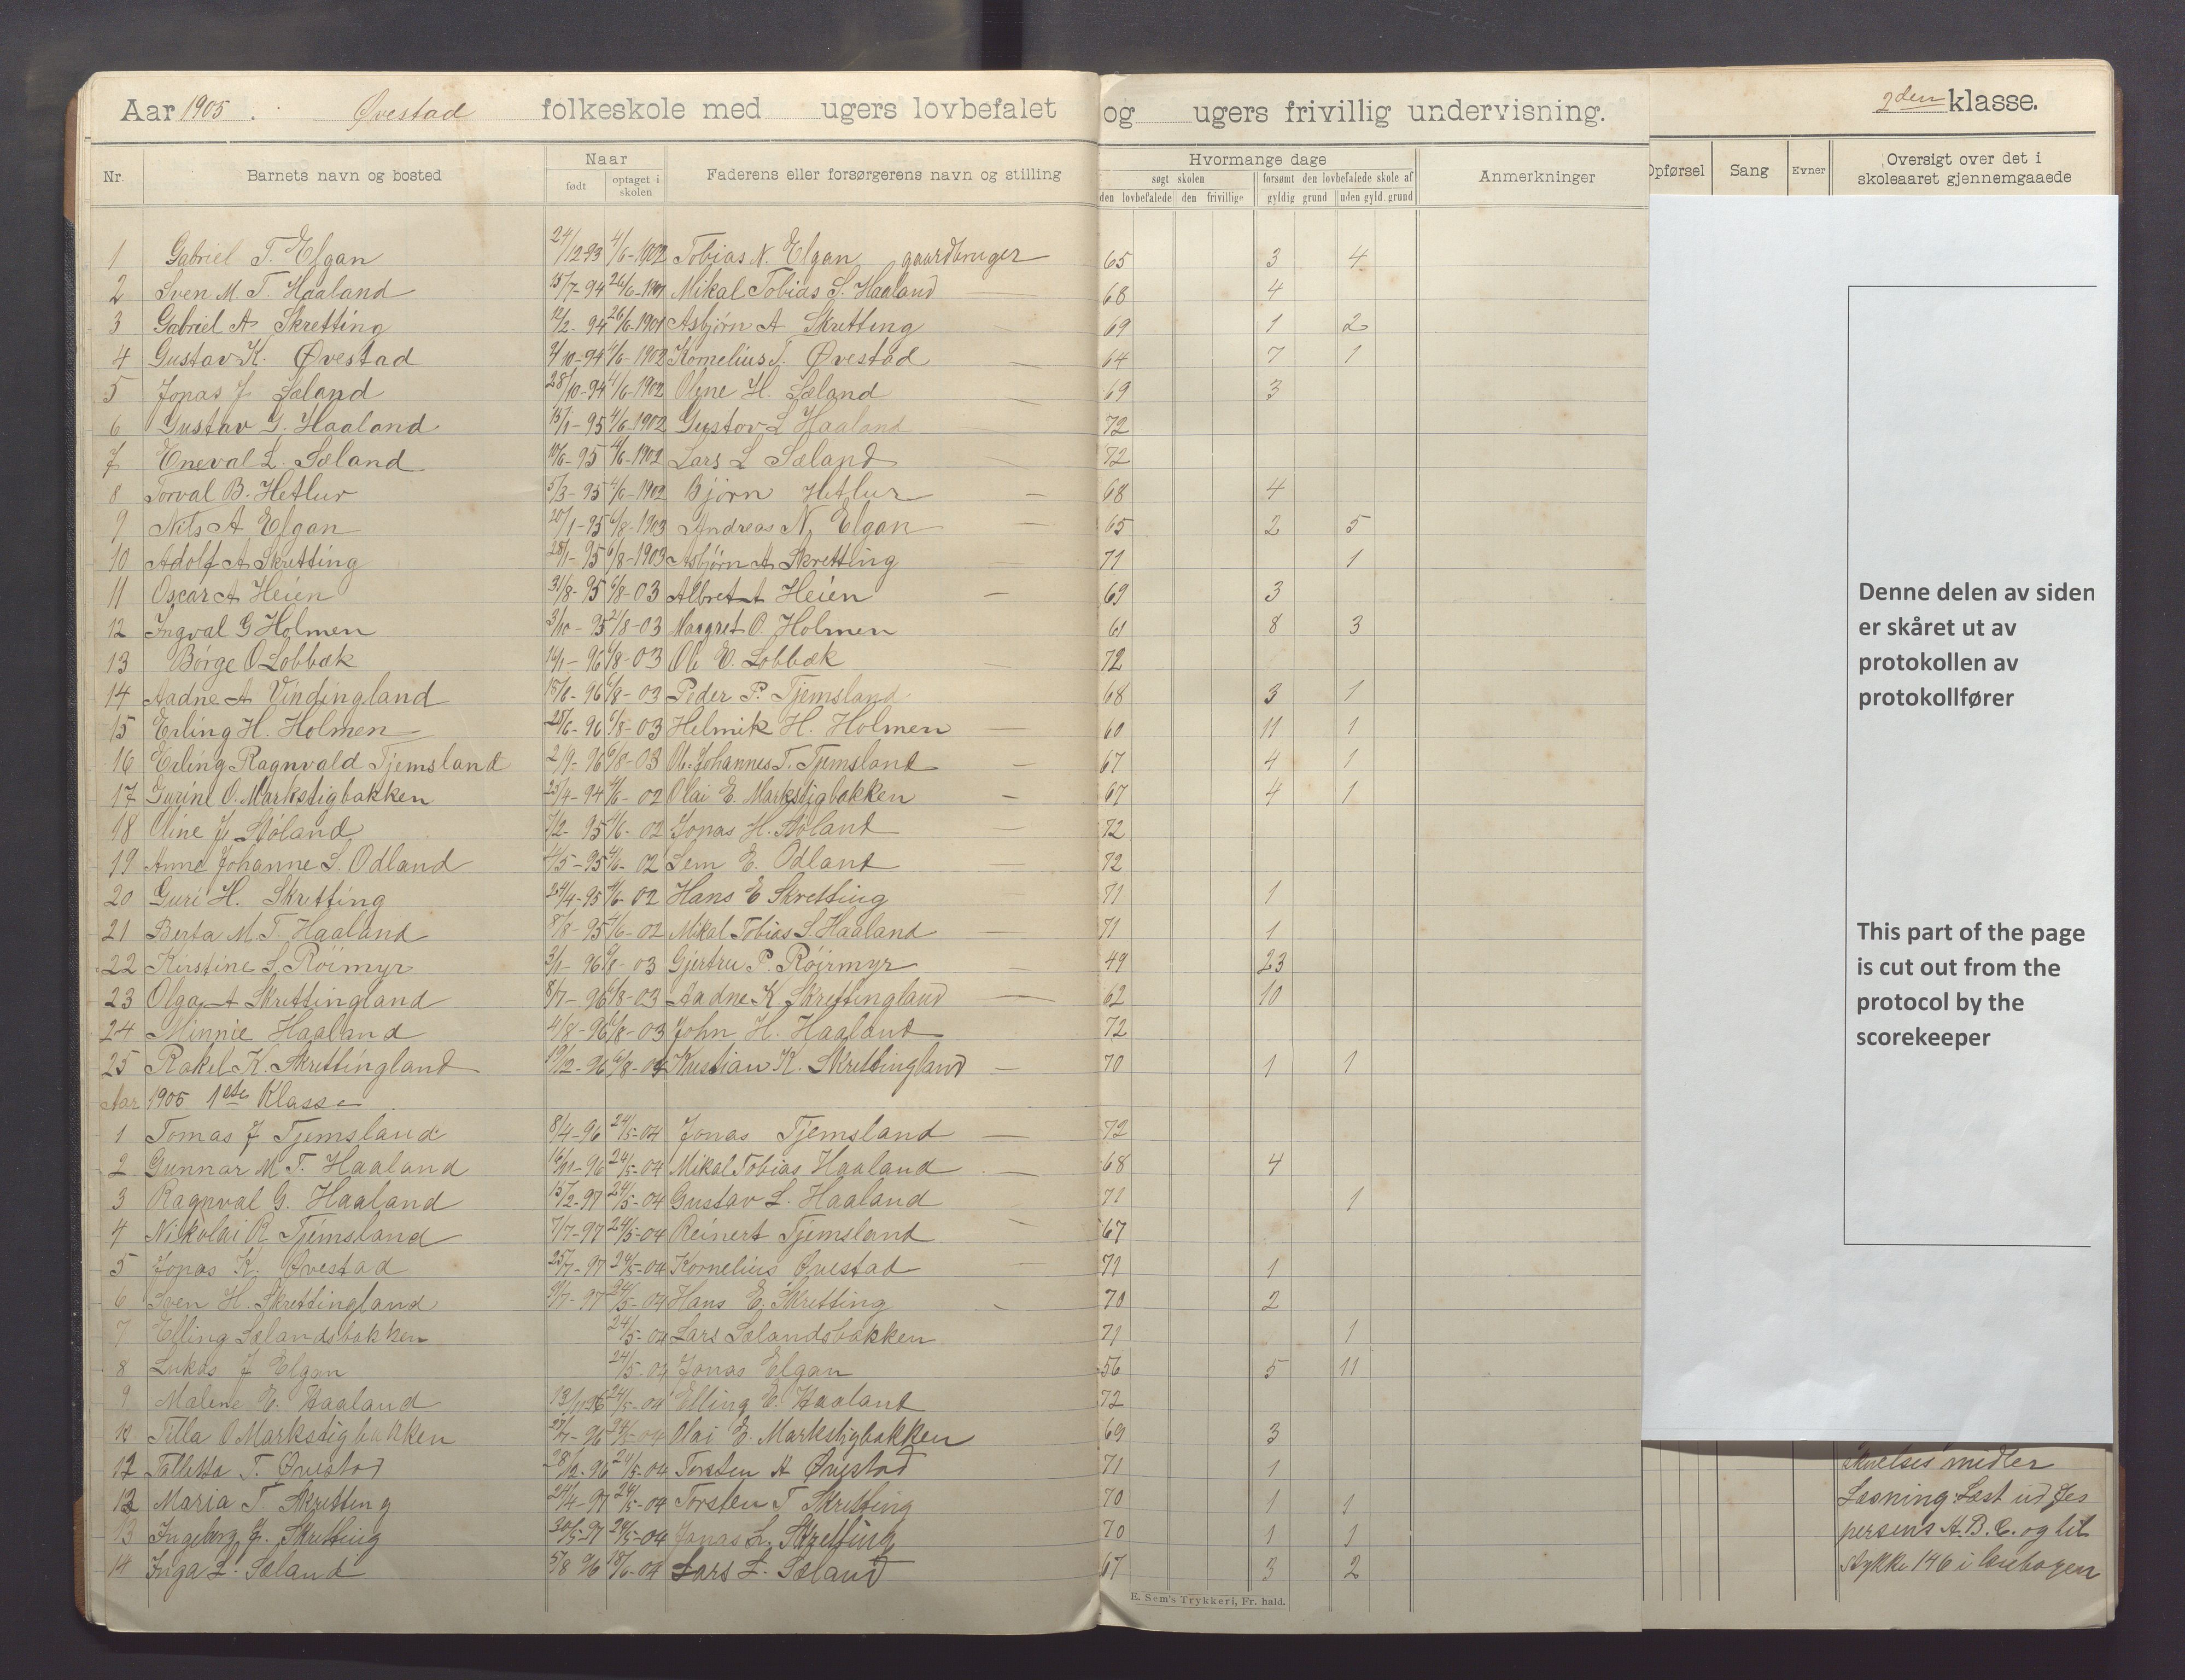 Aar 1905. Øvestad folkeskole med ugers lovbefalet og ugers frivillig undervisning. 2den klasse.
Nr. Barnets navn og bosted Naar født optaget i skolen Faderens eller forsørgerens navn og stilling Hvormange dage søgt skolen den lovbefalede den frivillige forsømt den lovbefalede skole af gyldig grund uden gyld. grund Anmerkninger Opførsel Sang Evner Oversigt over det i skoleaaret gjennemgaaede
1 Gabriel T. Elgan 24/12-93 4/6-1902 Tobias N. Elgan gaardbruger 65 3 4
2 Sven M. T. Haaland 15/7-94 26/6-1901 Mikal Tobias S. Haaland — 68 4
3 Gabriel A. Skretting 12/2-94 26/6-1901 Asbjörn A Skretting — 69 1 2
4 Gustav K. Øvestad 4/6-1902 Kornelius T. Øvestad — 64 7 1
5 Jonas J Sæland 28/10-94 4/6-1902 Olene H. Sæland — 69 3
6 Gustav G. Haaland 15/1-95 4/6-1902 Gustav L Haaland — 72
7 Eneval L. Sæland 10/6-95 4/6-1902 Lars L Sæland — 72
8 Torval B. Hetlur 5/3-95 4/6-1902 Björn Hetlur — 68 4
9 Nils A Elgan 20/1-95 6/8-1903 Andreas N. Elgan — 65 2 5
10 Adolf A Skretting 28/1-95 6/8-1903 Asbjörn A Skretting 71 1
11 Oscar A Heien 31/8-95 6/8-03 Albret A Heien — 69 3
12 Ingval G Holmen 3/10-95 2/8-03 Margret O. Holmen 61 8 3
13 Börge O Lobbæk 6/8-03 Ole E. Lobbæk — 72
14 Aadne A Vindingland 18/6-96 6/8-03 Peder P. Tjemsland 68 3 1
15 Erling H. Holmen 28/6-96 6/8-03 Helmik H. Holmen — 60 11 1
16 Erling Ragnvald Tjemsland 2/9-96 6/8-03 Johannes T. Tjemsland — 67 4 1
17 Gurine O. Markstigbakken 25/4-94 4/6-02 Olai E. Markstigbakken — 67 4 1
18 Oline J. Stöland 7/2-95 4/6-02 Jonas H. Stöland — 72
19 Anne Johanne S. Odland 4/5-95 4/6-02 Sem E. Odland — 72
20 Guri H. Skretting 24/4-95 4/6-02 Hans E Skretting — 71 1
21 Berta M. T. Haaland 8/8-95 4/6-02 Mikal Tobias S. Haaland — 71 1
22 Kirstine S. Röimyr 3/1-96 6/8-03 Gjertru P. Röirmyr — 49 23
23 Olga A Skrettingland 8/7-96 6/8-03 Aadne K. Skrettingland — 62 10
24 Minnie Haaland 4/8-96 6/8-03 John H. Haaland 72
25 Rakel K. Skrettingland 19/12-96 6/8-04 Kristian K. Skrettingland — 70 1 1
Aar 1905 1ste Klasse
1 Tomas J Tjemsland 8/4-96 24/5-04 Jonas Tjemsland — 72
2 Gunnar M. T. Haaland 16/11-96 24/5-04 Mikal Tobias Haaland — 68 4
3 Ragnval G. Haaland 15/2-97 24/5-04 Gustav L. Haaland 71 1
4 Nikolai R Tjemsland 7/7-97 24/5-04 Reinert Tjemsland 67
5 Jonas K. Øvestad 25/7-97 24/5-04 Kornelius Øvestad 71 1
6 Sven H. Skrettingland 9/7-97 24/5-04 Hans E. Skretting 70 2
7 Elling Sælandsbakken 24/5-04 Lars Sælandsbakken 71 1
8 Lukas J Elgan 24/5-04 Jonas Elgan 56 5 11
9 Malene E. Haaland 13/11-96 24/5-04 Elling E. Haaland 72
Tilla O Markstigbakken 24/5-04 Olai E. Markstigbakken 69 3
Talletta T. Øvestad 28/12-96 24/5-04 Torsten A Øvestad 71 1
Maria T Skretting 24/4-97 24/5-04 Torsten T Skretting 70 1 1
13 Ingeborg J. Skretting 30/5-97 24/5-04 Jonas L. Skretting 70 1 1
14 Inga L. Sæland 5/8 96 18/6-04 Lars L. Sæland 67 3 2
E. Sem's Trykkeri, Fr. hald.
Denne delen av siden
er skåret ut av
protokollen av
protokollfører
This part of the page
is cut out from the
protocol by the
scorekeeper
midler
Læsning: Læst ud Jes
persens A.B.C. og til
stykke 146 i læsebogen